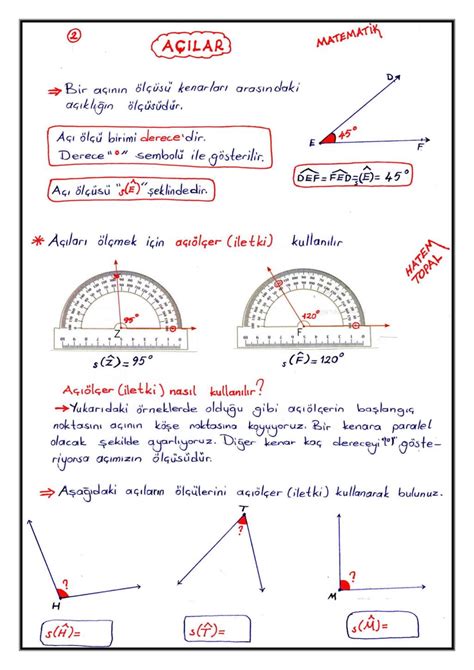 2
AÇILAR
MATEMATİK
⇒ Bir açının ölçüsü kenarları arasındaki
açıklığın ölçüsüdür.
Açı ölçü birimi derece'dir.
Derece "°" sembolü ile gösterilir.
Açı ölçüsü "s(Ê)" şeklindedir.
D
E
45°
F
DEF = FED = s(Ê) = 45°
* Açıları ölçmek için açıölçer (iletki) kullanılır
HATEM
TOPAL
95°
Z
120°
F
s(Ẑ) = 95°
s(F̂) = 120°
Açıölçer (iletki) nasıl kullanılır?
→ Yukarıdaki örneklerde olduğu gibi açıölçerin başlangıç
noktasını açının köşe noktasına koyuyoruz. Bir kenara paralel
olacak şekilde ayarlıyoruz. Diğer kenar kaç dereceyi göste-
riyorsa açımızın ölçüsüdür.
⇒ Aşağıdaki açıların ölçülerini açıölçer (iletki) kullanarak bulunuz.
?
H
T
?
?
M
s(Ĥ)=
s(T̂)=
s(M̂)=